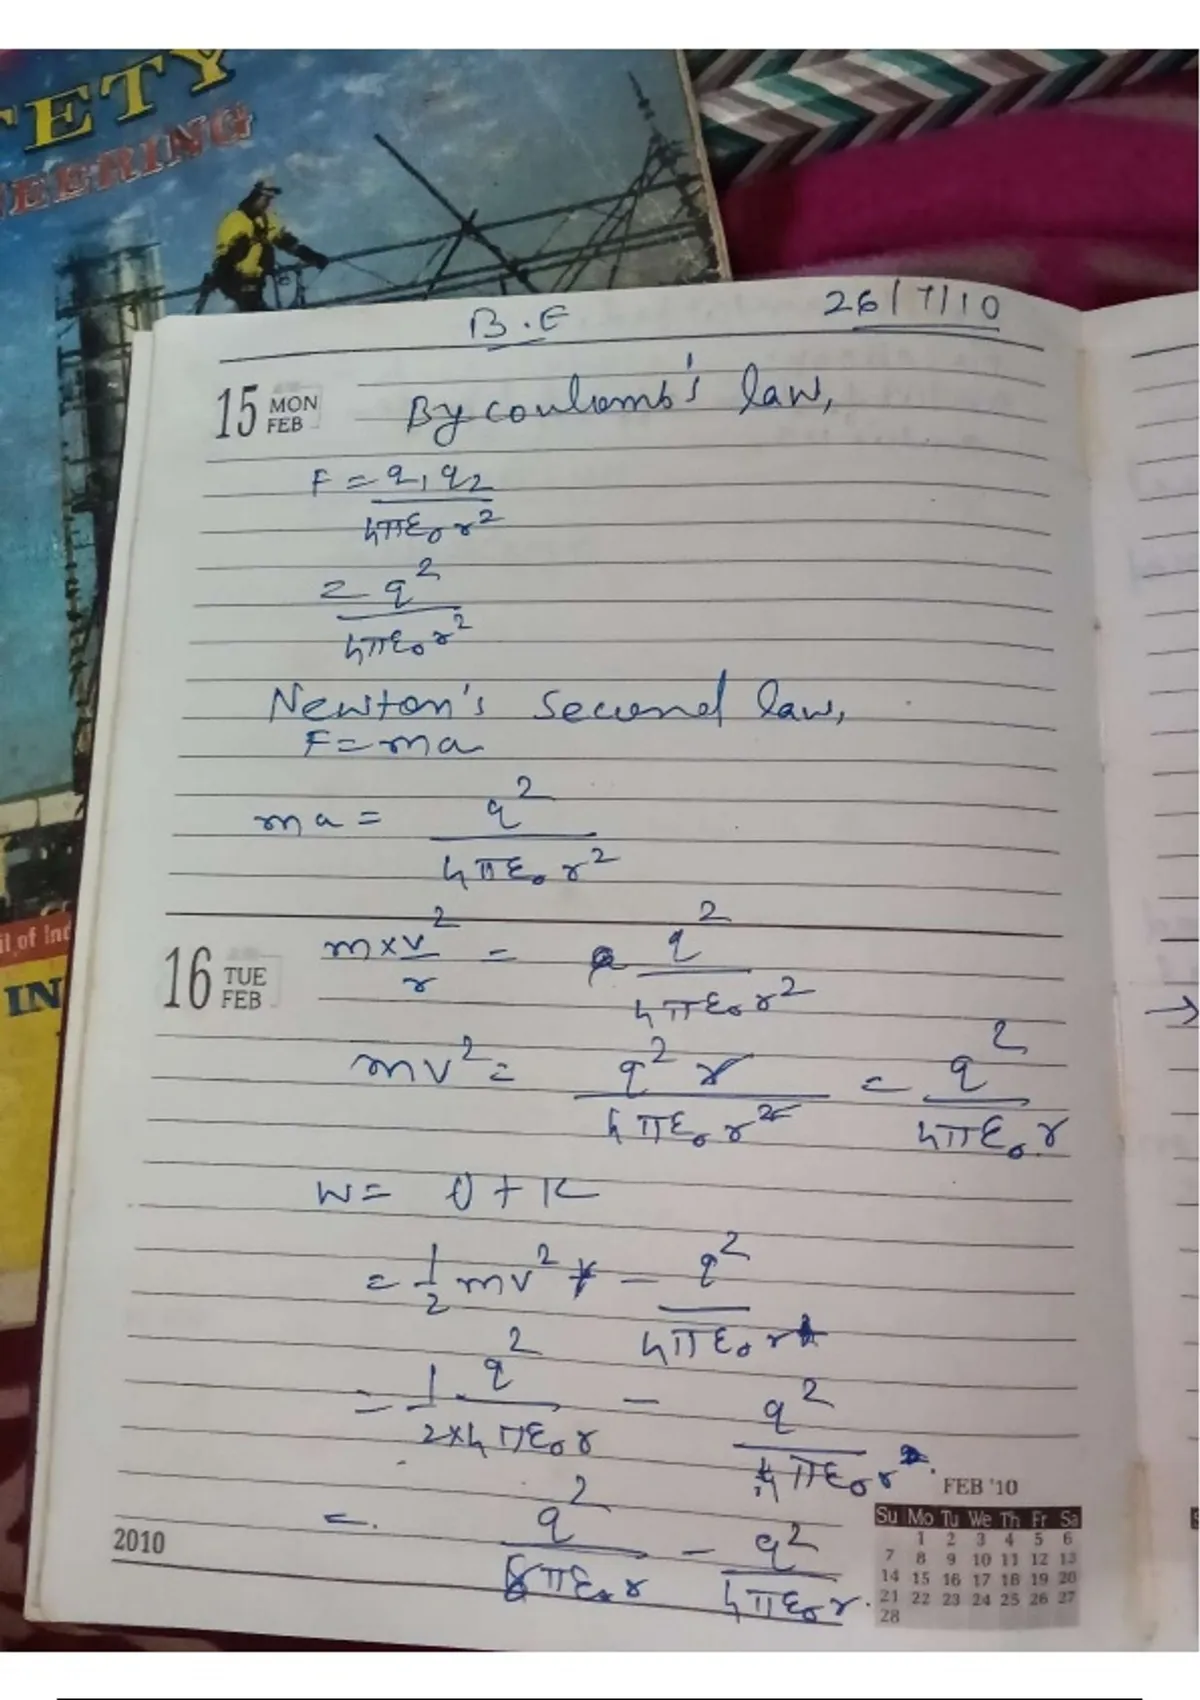 ETY
EERING
B.E 26/7/10
15 MON FEB
By coulomb's law,
F = q₁q₂ / 4πε₀r²
= q² / 4πε₀r²
Newton's second law,
F = ma
ma = q² / 4πε₀r²
16 TUE FEB
m × v²/r = q² / 4πε₀r²
mv² = q² r / 4πε₀r² = q² / 4πε₀r
→
W = U + K
= 1/2 mv² - q² / 4πε₀r
= 1 . q² / 2×4πε₀r - q² / 4πε₀r
= q² / 8πε₀r - q² / 4πε₀r.
il of Ind
IN
2010
FEB '10
Su Mo Tu We Th Fr Sa
1 2 3 4 5 6
7 8 9 10 11 12 13
14 15 16 17 18 19 20
21 22 23 24 25 26 27
28